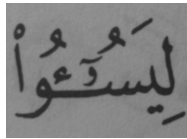 لِيَسُـۥٓـُٔوا۟